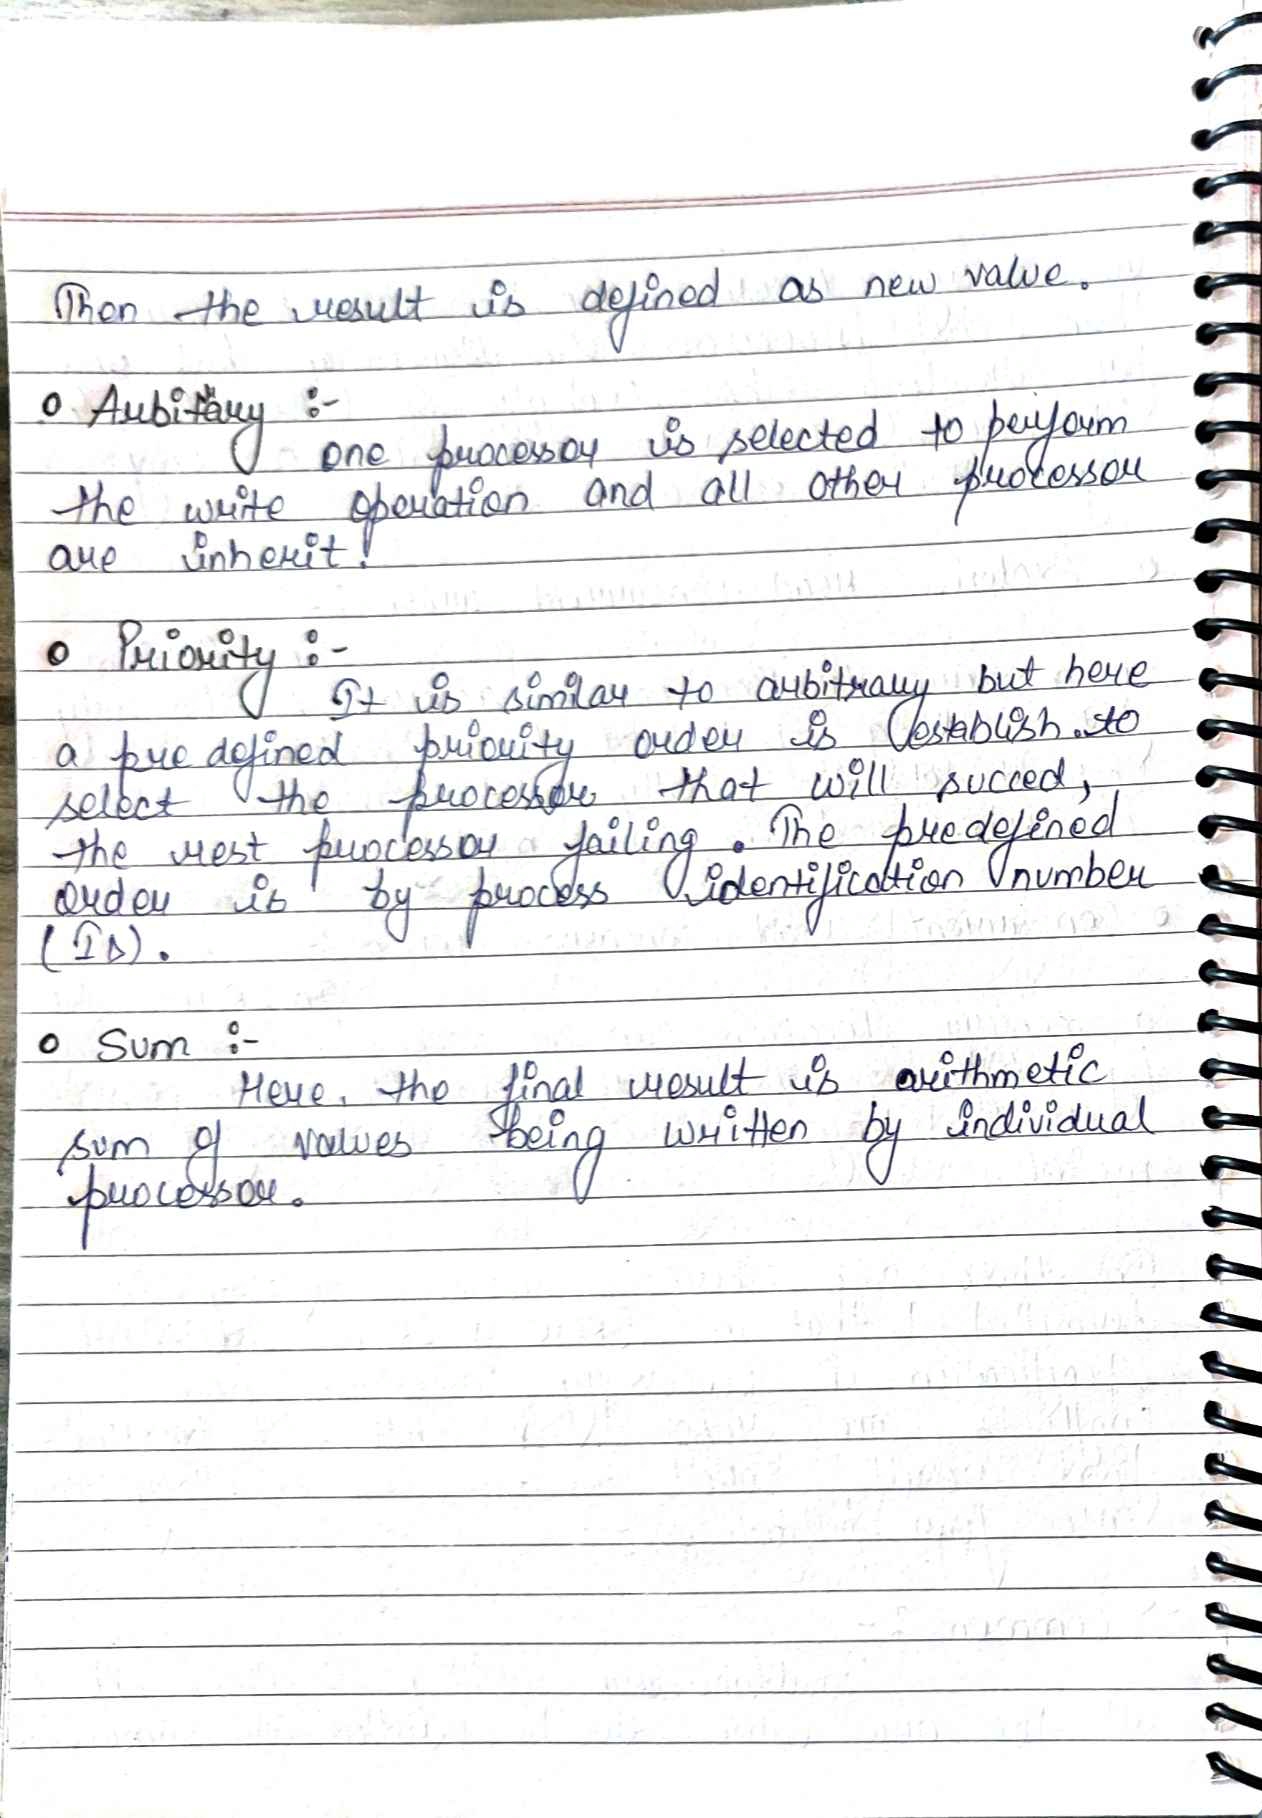 Then the result is defined as new value.
o Arbitary :-
one processor is selected to perform
the write operation and all other processor
are inherit.
o Priority :-
It is similar to arbitrary but here
a pre defined priority order is establish to
select the processor that will succed,
the rest processor failing. The predefined
order is by process identification number
(ID).
o Sum :-
Here, the final result is arithmetic
sum of values being written by individual
processor.